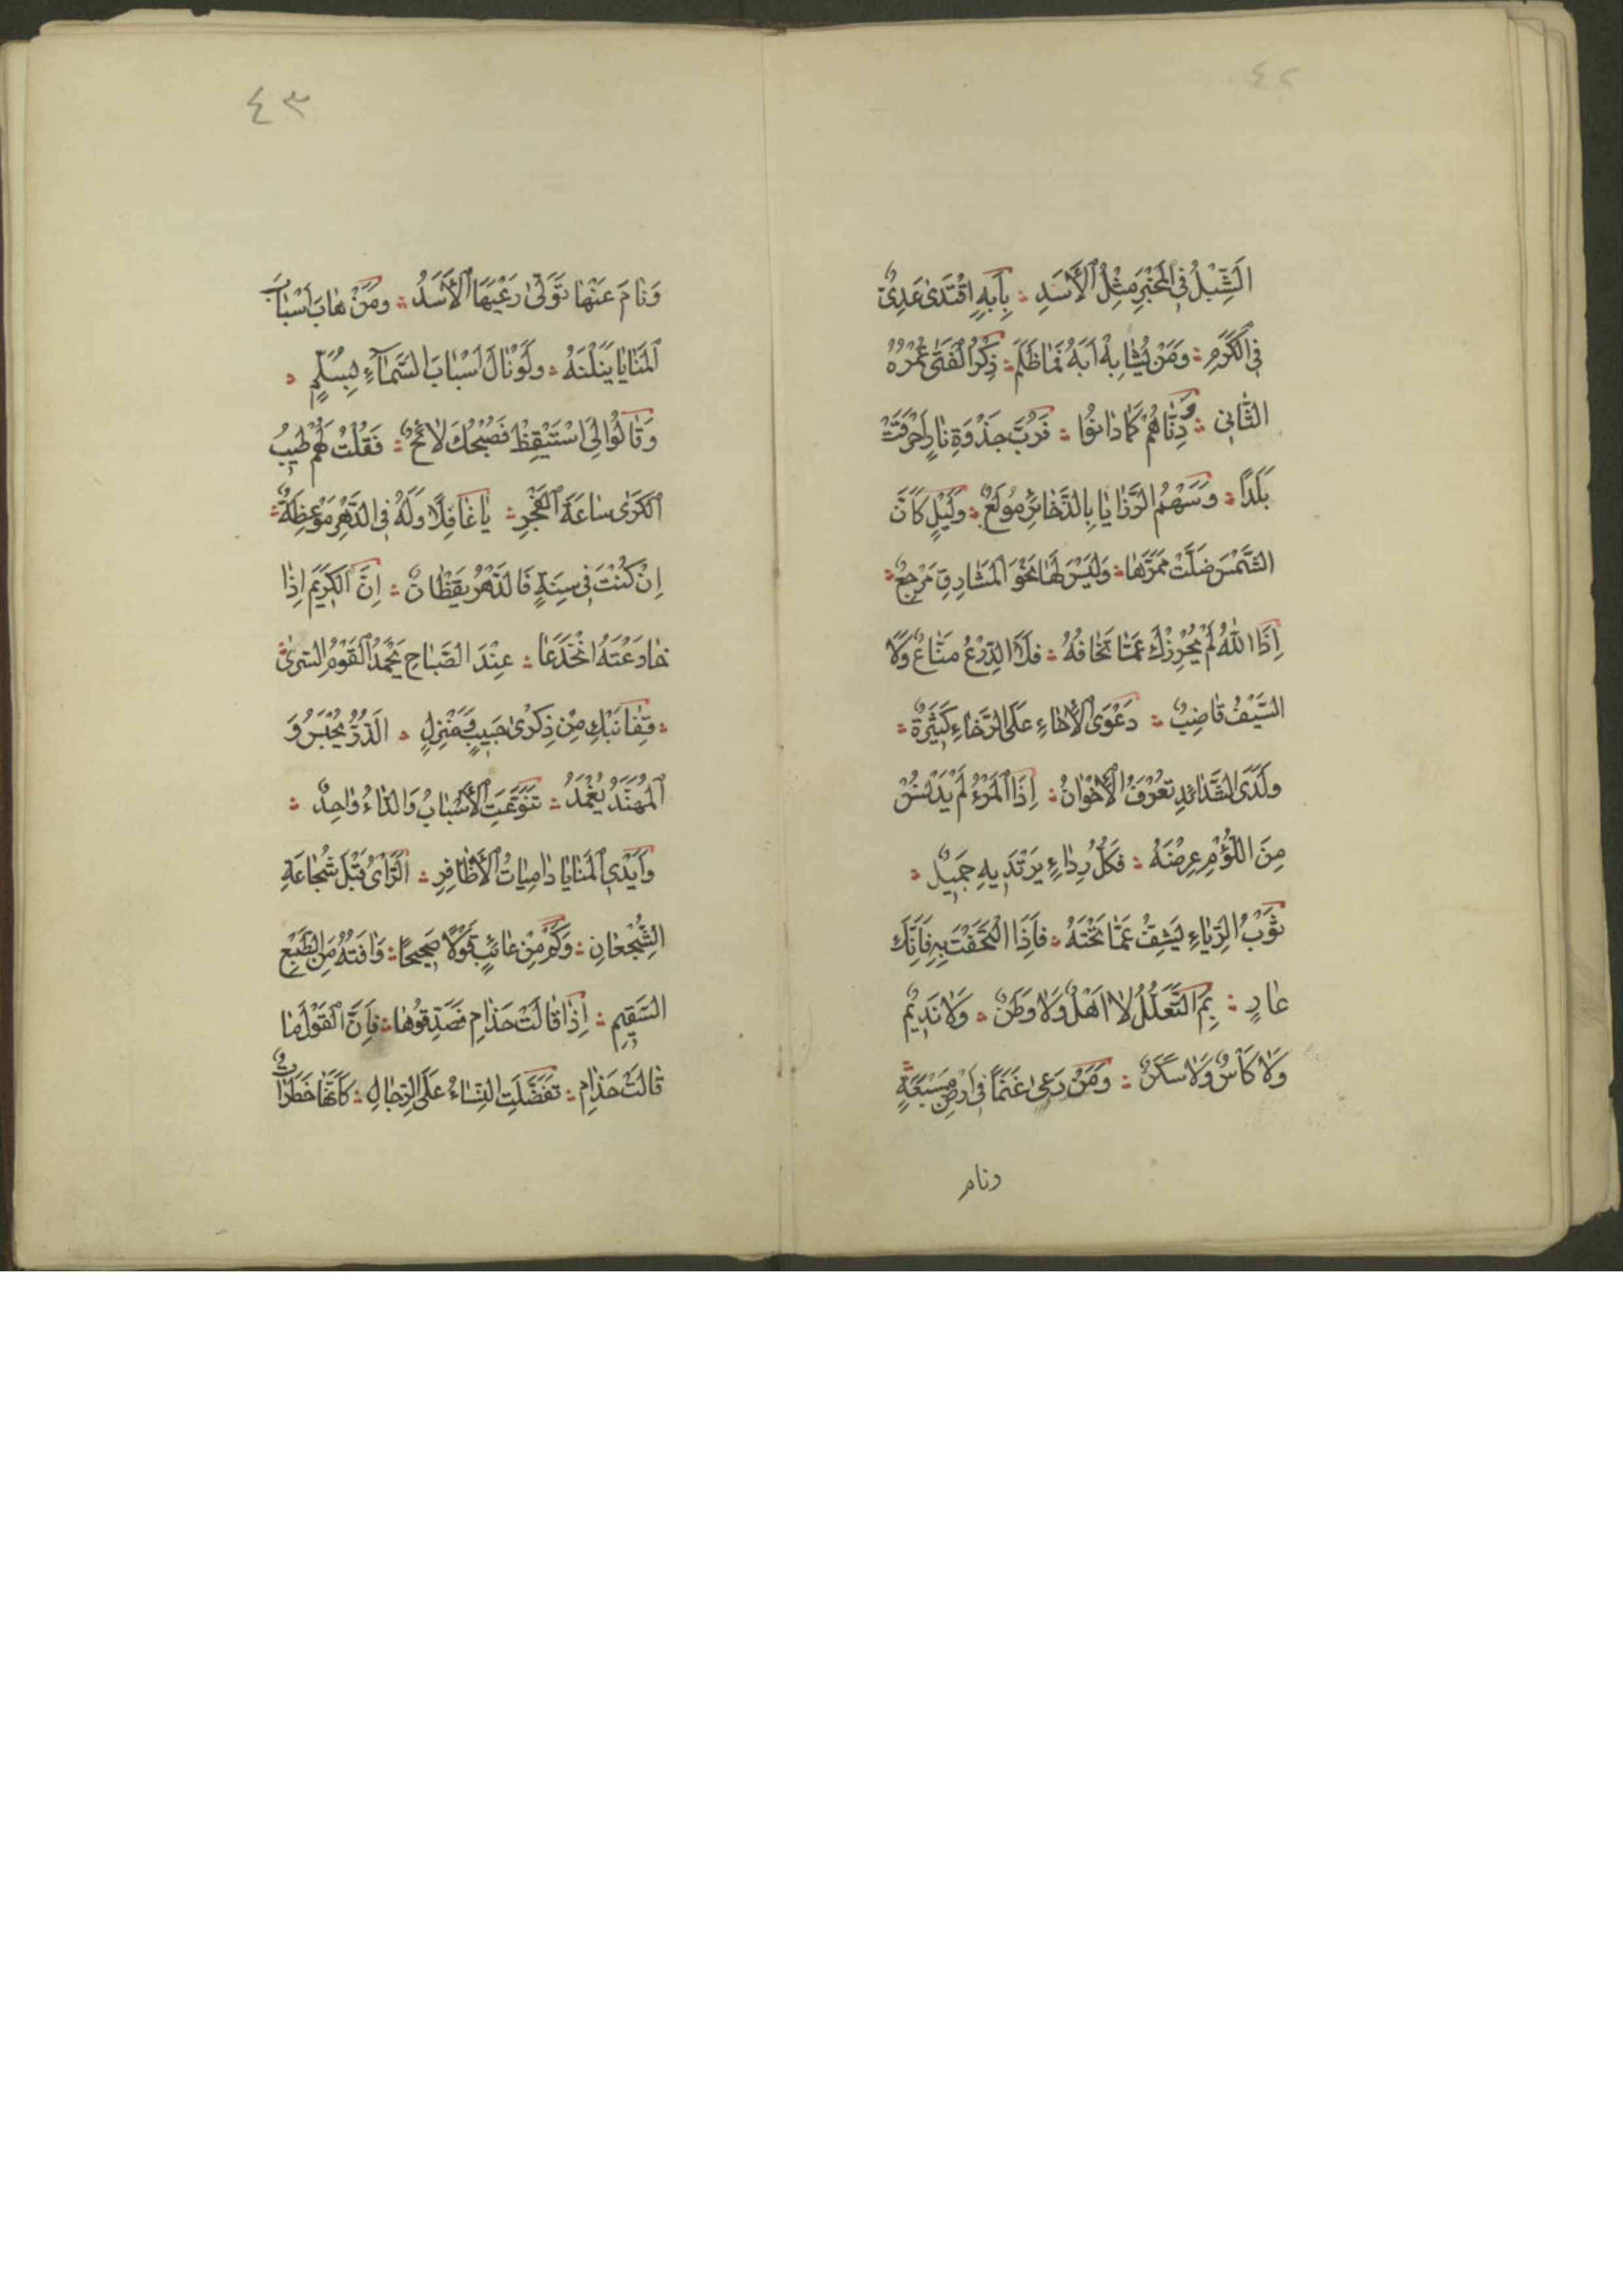 ٤٢
اَلشِّبْلُ فِى الْمَخْبَرِ مِثْلُ الْأَسَدِ ؞ بِأَبِهِ اقْتَدٰى عَدِىٌّ
فِى الْكَرَمِ ؞ وَمَنْ يُشَابِهْ اَبَهُ فَمَا ظَلَمَ ؞ ذِكْرُ الْفَتٰى عُمْرُهُ
الثَّانِى ؞ دِنَّاهُمْ كَمَا دَانُوا ؞ فَرُبَّ جَذْوَةِ نَارٍ اَحْرَقَتْ
بَلَدًا ؞ وَسَهْمُ الرَّزَايَا بِالذَّخَائِرِ مُولَعٌ ؞ وَلَيْلٍ كَاَنَّ
الشَّمْسَ ضَلَّتْ مَمَرَّهَا ؞ وَلَيْسَ لَهَا نَحْوَ الْمَشَارِقِ مَرْجِعٌ ؞
اِذَا اللّٰهُ لَمْ يُحْرِزْكَ عَمَّا تَخَافُهُ ؞ فَلَا الدِّرْعُ مَنَّاعٌ وَلَا
السَّيْفُ قَاضِبٌ ؞ دَعْوَى الْأِخَاءِ عَلَى الرَّخَاءِ كَثِيْرَةٌ ؞
وَلَدَى الشَّدَائِدِ تُعْرَفُ الْأِخْوَانُ ؞ اِذَا الْمَرْءُ لَمْ يَدْنَسْ
مِنَ اللُّؤْمِ عِرْضُهُ ؞ فَكُلُّ رِدَاءٍ يَرْتَدِيهِ جَمِيلٌ ؞
ثَوْبُ الرِّيَاءِ يَشِفُّ عَمَّا تَحْتَهُ ؞ فَاِذَا الْتَحَفْتَ بِهِ فَاِنَّكَ
عَارٍ ؞ بِمَ التَّعَلُّلُ لَا اَهْلٌ وَلَا وَطَنٌ ؞ وَلَا نَدِيمٌ
وَلَا كَأْسٌ وَلَا سَكَنٌ ؞ وَمَنْ رَعٰى غَنَمًا فِى اَرْضِ مَسْبَعَةٍ
ونام
٤٣
وَنَامَ عَنْهَا تَوَلّٰى رَعْيَهَا الْأَسَدُ ؞ وَمَنْ هَابَ اَسْبَابَ
الْمَنَايَا يَنَلْنَهُ ؞ وَلَوْ نَالَ اَسْبَابَ السَّمَاءِ بِسُلَّمٍ ؞
وَقَالُوا لِىَ اسْتَيْقِظْ فَصُبْحُكَ لَائِحٌ ؞ فَقُلْتُ لَهُمْ طِيبُ
الْكَرٰى سَاعَةَ الْفَجْرِ ؞ يَا غَافِلًا وَلَهُ فِى الدَّهْرِ مَوْعِظَةٌ ؞
اِنْ كُنْتَ فِى سِنَةٍ فَالدَّهْرُ يَقْظَانُ ؞ اِنَّ الْكَرِيمَ اِذَا
خَادَعْتَهُ انْخَدَعَا ؞ عِنْدَ الصَّبَاحِ يَحْمَدُ الْقَوْمُ السُّرٰى ؞
؞ قِفَا نَبْكِ مِنْ ذِكْرٰى حَبِيبٍ وَمَنْزِلٍ ؞ اَلدُّرُّ يُحْبَسُ وَ
الْمُهَنَّدُ يُغْمَدُ ؞ تَنَوَّعَتِ الْأَسْبَابُ وَالدَّاءُ وَاحِدٌ ؞
وَاَيْدِى الْمَنَايَا دَامِيَاتُ الْأَظَافِرِ ؞ اَلرَّأْىُ قَبْلَ شُجَاعَةِ
الشُّجْعَانِ ؞ وَكَمْ مِنْ عَائِبٍ قَوْلًا صَحِيحًا ؞ وَافَتُهُ مِنَ الطَّبْعِ
السَّقِيمِ ؞ اِذَا قَالَتْ حَذَامِ فَصَدِّقُوهَا ؞ فَاِنَّ الْقَوْلَ مَا
قَالَتْ حَذَامِ ؞ تَفَضَّلَتِ النِّسَاءُ عَلَى الرِّجَالِ ؞ كَاَنَّهَا خَطَرَاتُ